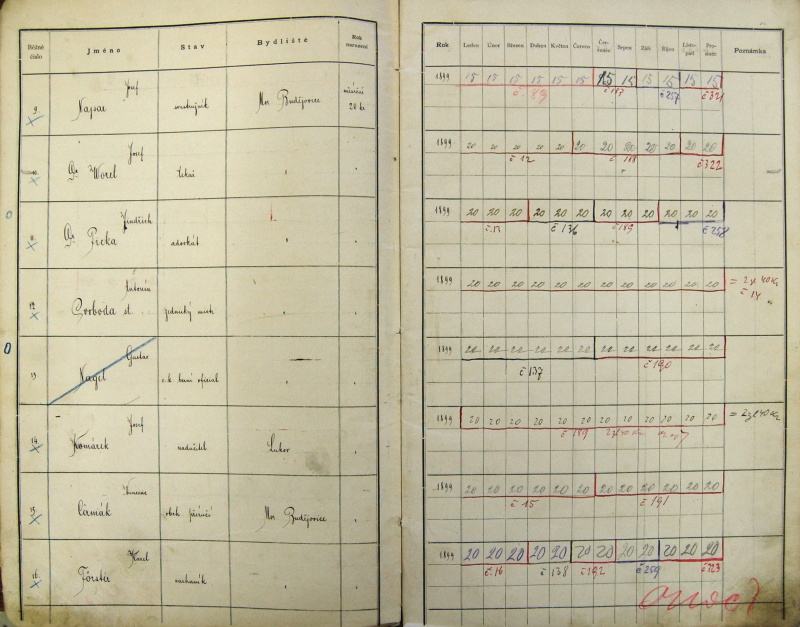 Běžné číslo Jméno Stav Bydliště Rok narození
9 Josef
Mor Budějovice 20 kr
10 Josef
Dr Worel lékař "
11 Jindřich
Dr advokát "
12 Antonín
Svoboda st. "
13 Gustav
Nagel c.k. berní oficial "
14 Josef
Komárek nadučitel
15
Čermák Mor Budějovice "
16 Karel
Förster "
Rok Leden Únor Březen Duben Květen Červen Čer-venec Srpen Září Říjen Listo-pad Pro-sinec Poznámka
1899 15 15 15 15 15 15 15 15 15 15 15 15
č. 89 č 257 č 321
1899 20 20 20 20 20 20 20 20 20 20 20 20
č 12 č 188 č 322
1899 20 20 20 20 20 20 20 20 20 20 20 20
č 13 č 136 č 189 č 258
1899 20 20 20 20 20 20 20 20 20 20 20 20 = 2 zl 40 Kr
č 14
1899 20 20 20 20 20 20 20 20 20 20 20 20
č 137 č 190
1899 20 20 20 20 20 20 20 20 20 20 20 20 = 2 zl 40 Kr
č 189 2 zl 40 Kr
1899 20 20 20 20 20 20 20 20 20 20 20 20
č 15 č 191
1899 20 20 20 20 20 20 20 20 20 20 20 20
č 16 č 138 č 192 č 259 č 323